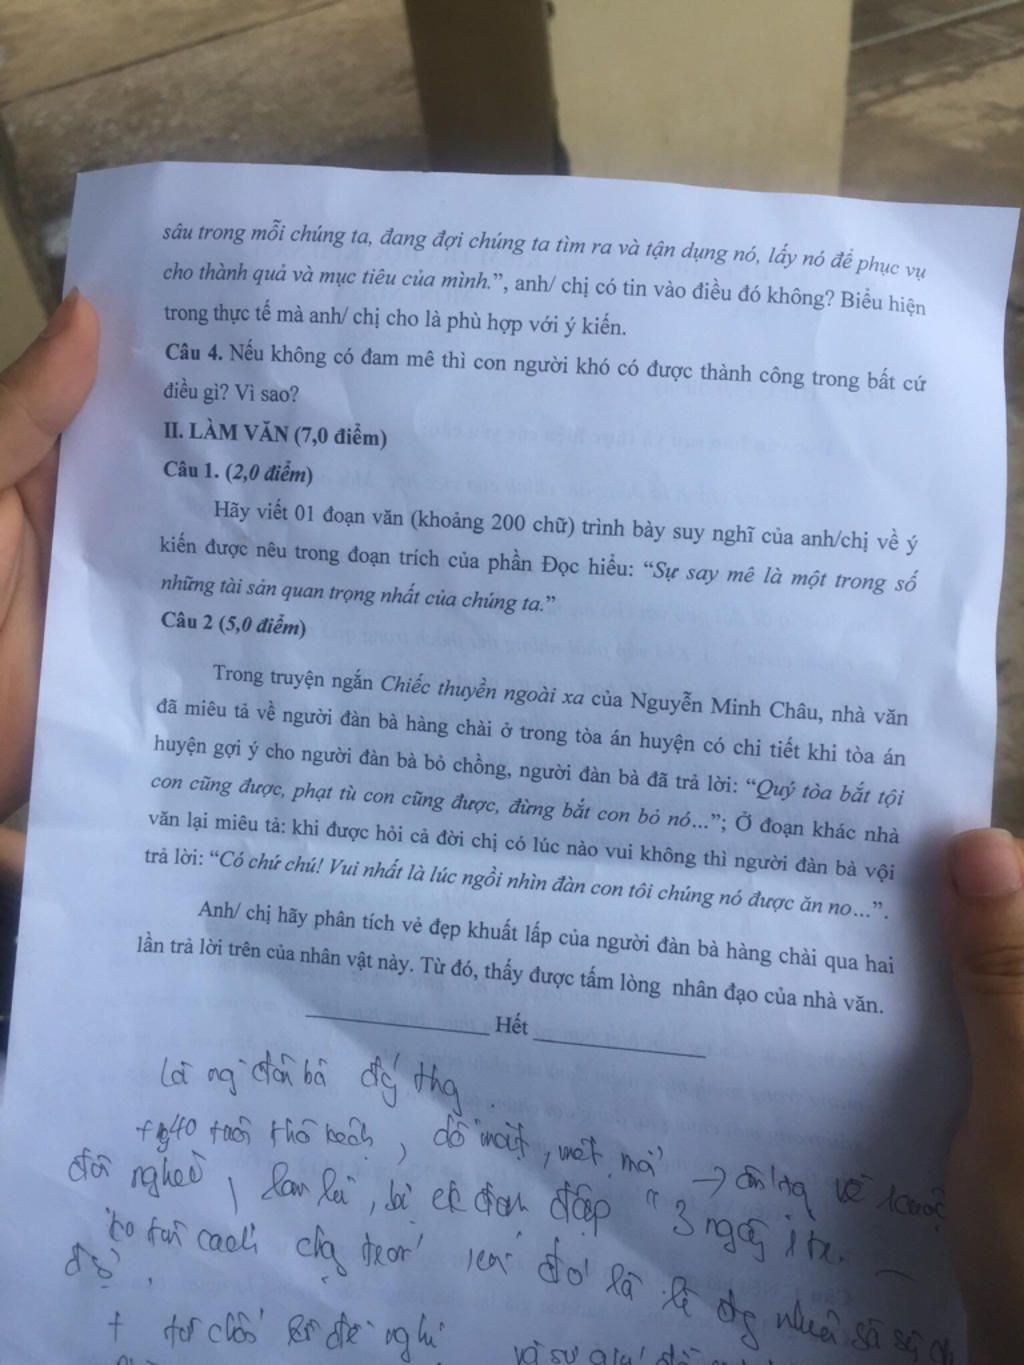 sâu trong mỗi chúng ta, đang đợi chúng ta tìm ra và tận dụng nó, lấy nó để phục vụ
cho thành quả và mục tiêu của mình.”, anh/ chị có tin vào điều đó không? Biểu hiện
trong thực tế mà anh/ chị cho là phù hợp với ý kiến.
Câu 4. Nếu không có đam mê thì con người khó có được thành công trong bất cứ
điều gì? Vì sao?
II. LÀM VĂN (7,0 điểm)
Câu 1. (2,0 điểm)
Hãy viết 01 đoạn văn (khoảng 200 chữ) trình bày suy nghĩ của anh/chị về ý
kiến được nêu trong đoạn trích của phần Đọc hiểu: “Sự say mê là một trong số
những tài sản quan trọng nhất của chúng ta.”
Câu 2 (5,0 điểm)
Trong truyện ngắn Chiếc thuyền ngoài xa của Nguyễn Minh Châu, nhà văn
đã miêu tả về người đàn bà hàng chài ở trong tòa án huyện có chi tiết khi tòa án
huyện gợi ý cho người đàn bà bỏ chồng, người đàn bà đã trả lời: “Quý tòa bắt tội
con cũng được, phạt tù con cũng được, đừng bắt con bỏ nó...”; Ở đoạn khác nhà
văn lại miêu tả: khi được hỏi cả đời chị có lúc nào vui không thì người đàn bà vội
trả lời: “Có chứ chú! Vui nhất là lúc ngồi nhìn đàn con tôi chúng nó được ăn no...”.
Anh/ chị hãy phân tích vẻ đẹp khuất lấp của người đàn bà hàng chài qua hai
lần trả lời trên của nhân vật này. Từ đó, thấy được tấm lòng nhân đạo của nhà văn.
Hết
Là ng đàn bà đg thg
40 tuổi thô kệch, mệt mỏi →
nghèo, lam lũ, bị đánh đập "3 ngày 1
là lẽ
+